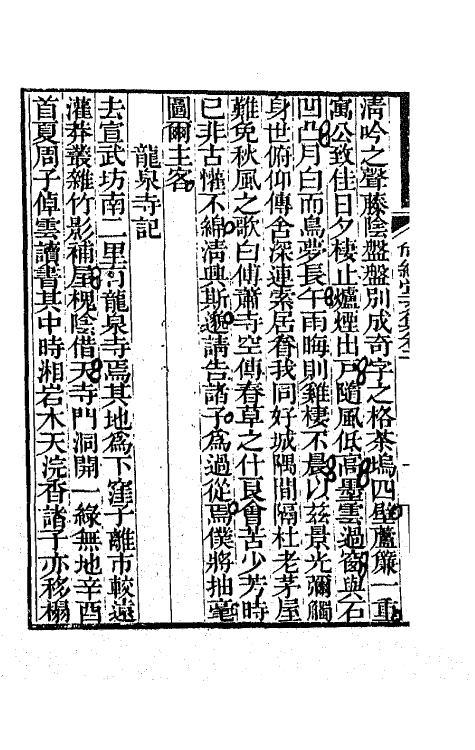 清吟之聲藤陰盤盤別成奇字之格茶塢四壁蘆簾一重
寓公致佳日夕棲止爐煙出戸隨風低高墨雲過窗與石
凹凸月白而鳥夢長午雨晦則雞棲不晨以茲景光彌觸
身世俯仰傳舍深連索居眷我同好城隅間隔杜老茅屋
難免秋風之歌白傅蕭寺空傳春草之什良會苦少芳時
已非古懽不綿清興斯邈請告諸子爲過從焉僕將抽毫
圖爾主客
龍泉寺記
去宣武坊南一里何龍泉寺焉其地為下窪子離市較遠
灌莽叢雜竹影補屋槐陰借天寺門洞開一綠無地辛酉
首夏周子倬雲讀書其中時湘岩木天浣香諸子亦移榻